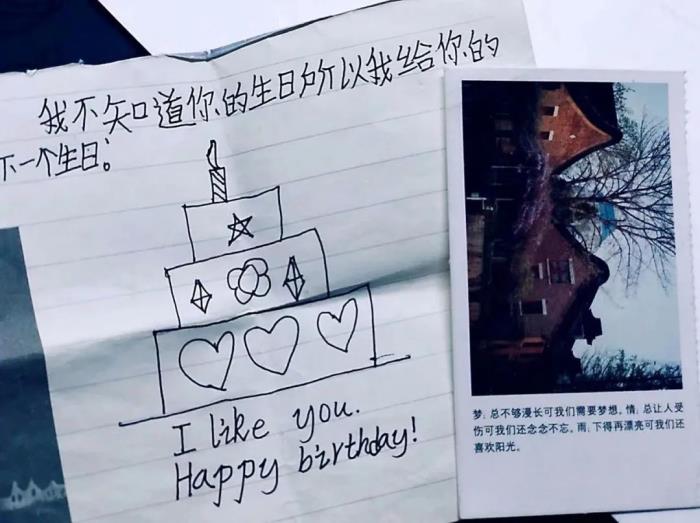 我不知道你的生日所以我给你的
不一个生日。
I like you.
Happy birthday!
梦；总不够漫长可我们需要梦想。情；总让人受
伤可我们还念念不忘。雨；下得再漂亮可我们还
喜欢阳光。